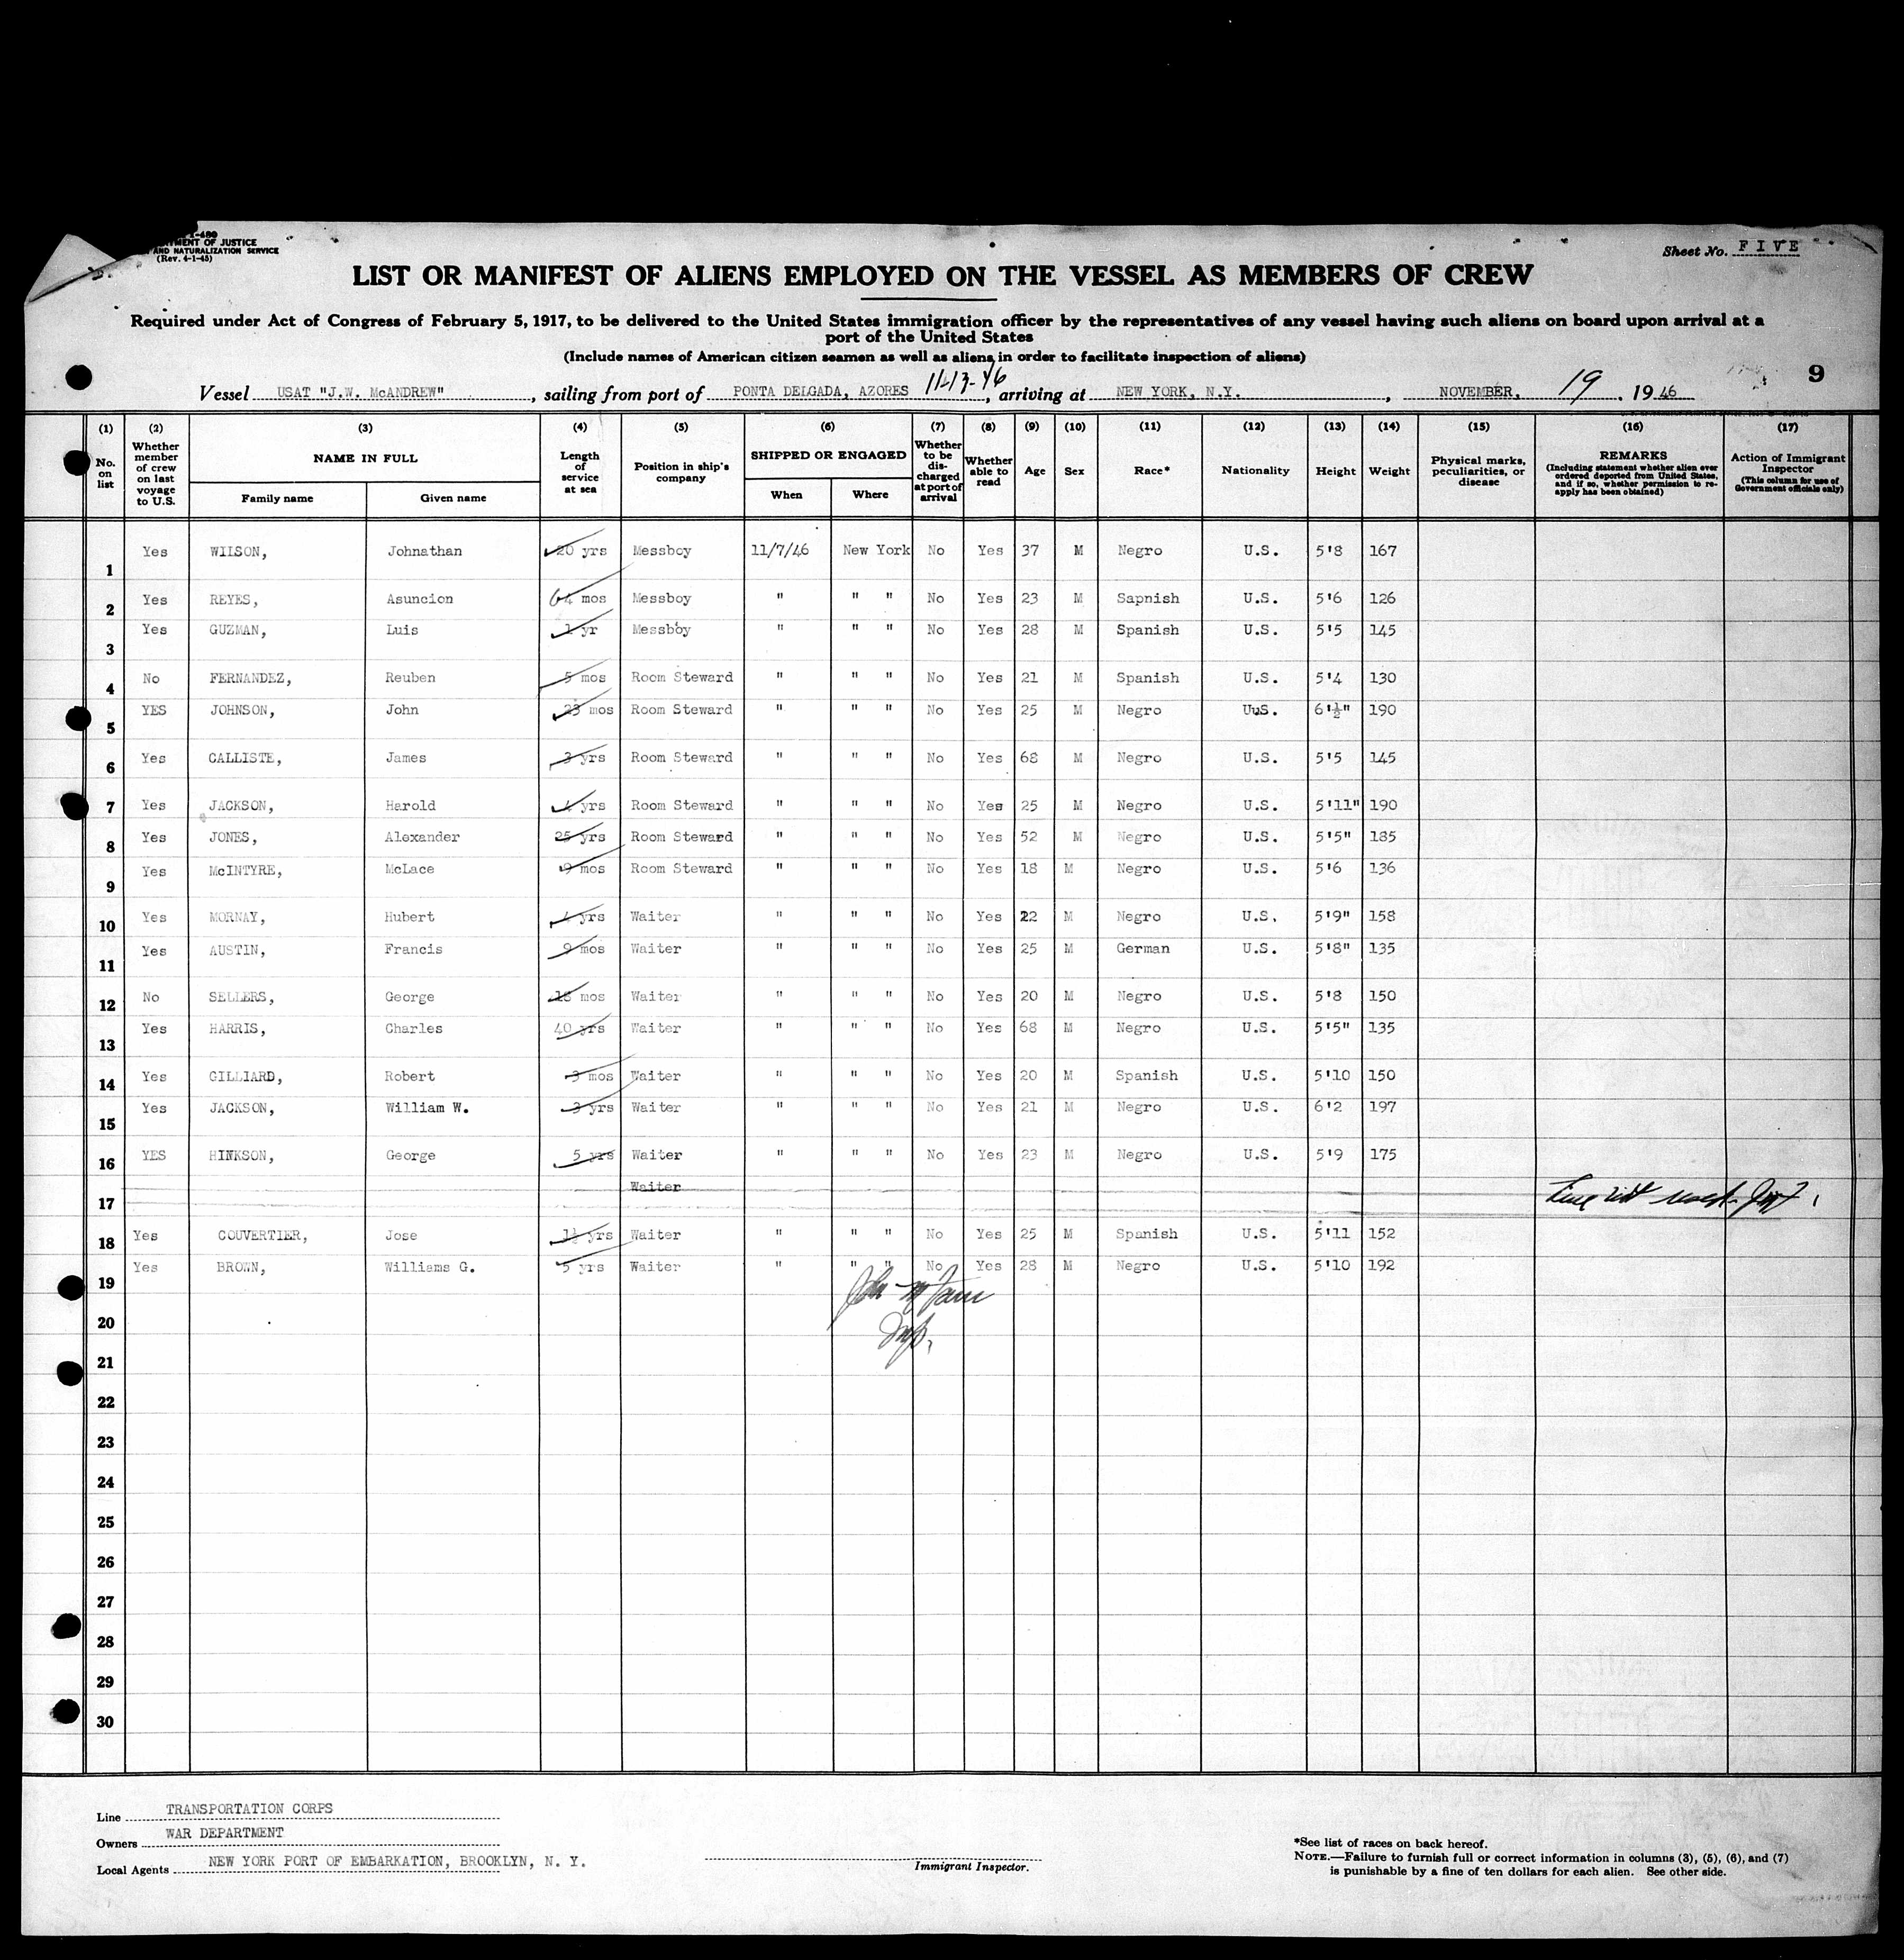 I-480
DEPARTMENT OF JUSTICE
AND NATURALIZATION SERVICE
(Rev. 4-1-45)
Sheet No. FIVE
LIST OR MANIFEST OF ALIENS EMPLOYED ON THE VESSEL AS MEMBERS OF CREW
Required under Act of Congress of February 5, 1917, to be delivered to the United States immigration officer by the representatives of any vessel having such aliens on board upon arrival at a
port of the United States
(Include names of American citizen seamen as well as aliens in order to facilitate inspection of aliens)
9
Vessel USAT "J.W. McANDREW", sailing from port of PONTA DELGADA, AZORES 11-13-46, arriving at NEW YORK, N.Y., NOVEMBER, 19, 1946
(1) No. on list
(2) Whether member of crew on last voyage to U.S.
(3) NAME IN FULL Family name Given name
(4) Length of service at sea
(5) Position in ship's company
(6) SHIPPED OR ENGAGED When Where
(7) Whether to be discharged at port of arrival
(8) Whether able to read
(9) Age
(10) Sex
(11) Race*
(12) Nationality
(13) Height
(14) Weight
(15) Physical marks, peculiarities, or disease
(16) REMARKS (Including statement whether alien ever ordered deported from United States, and if so, whether permission to re-apply has been obtained)
(17) Action of Immigrant Inspector (This column for use of Government officials only)
1 Yes WILSON, Johnathan 20 yrs Messboy 11/7/46 New York No Yes 37 M Negro U.S. 5'8 167
2 Yes REYES, Asuncion 64 mos Messboy " " " No Yes 23 M Sapnish U.S. 5'6 126
3 Yes GUZMAN, Luis 1 yr Messboy " " " No Yes 28 M Spanish U.S. 5'5 145
4 No FERNANDEZ, Reuben 5 mos Room Steward " " " No Yes 21 M Spanish U.S. 5'4 130
5 YES JOHNSON, John 23 mos Room Steward " " " No Yes 25 M Negro UuS. 6'½" 190
6 Yes CALLISTE, James 3 yrs Room Steward " " " No Yes 68 M Negro U.S. 5'5 145
7 Yes JACKSON, Harold 4 yrs Room Steward " " " No Yes 25 M Negro U.S. 5'11" 190
8 Yes JONES, Alexander 25 yrs Room Steward " " " No Yes 52 M Negro U.S. 5'5" 185
9 Yes McINTYRE, McLace 9 mos Room Steward " " " No Yes 18 M Negro U.S. 5'6 136
10 Yes MORNAY, Hubert 4 yrs Waiter " " " No Yes 22 M Negro U.S. 5'9" 158
11 Yes AUSTIN, Francis 9 mos Waiter " " " No Yes 25 M German U.S. 5'8" 135
12 No SELLERS, George 18 mos Waiter " " " No Yes 20 M Negro U.S. 5'8 150
13 Yes HARRIS, Charles 40 yrs Waiter " " " No Yes 68 M Negro U.S. 5'5" 135
14 Yes GILLIARD, Robert 3 mos Waiter " " " No Yes 20 M Spanish U.S. 5'10 150
15 Yes JACKSON, William W. 3 yrs Waiter " " " No Yes 21 M Negro U.S. 6'2 197
16 YES HINKSON, George 5 yrs Waiter " " " No Yes 23 M Negro U.S. 5'9 175
17 Waiter Line not used
18 Yes COUVERTIER, Jose 1½ yrs Waiter " " " No Yes 25 M Spanish U.S. 5'11 152
19 Yes BROWN, Williams G. 5 yrs Waiter " " " No Yes 28 M Negro U.S. 5'10 192
20
21
22
23
24
25
26
27
28
29
30
Line TRANSPORTATION CORPS
Owners WAR DEPARTMENT
Local Agents NEW YORK PORT OF EMBARKATION, BROOKLYN, N. Y.
Immigrant Inspector.
*See list of races on back hereof.
NOTE.—Failure to furnish full or correct information in columns (3), (5), (6), and (7)
is punishable by a fine of ten dollars for each alien. See other side.